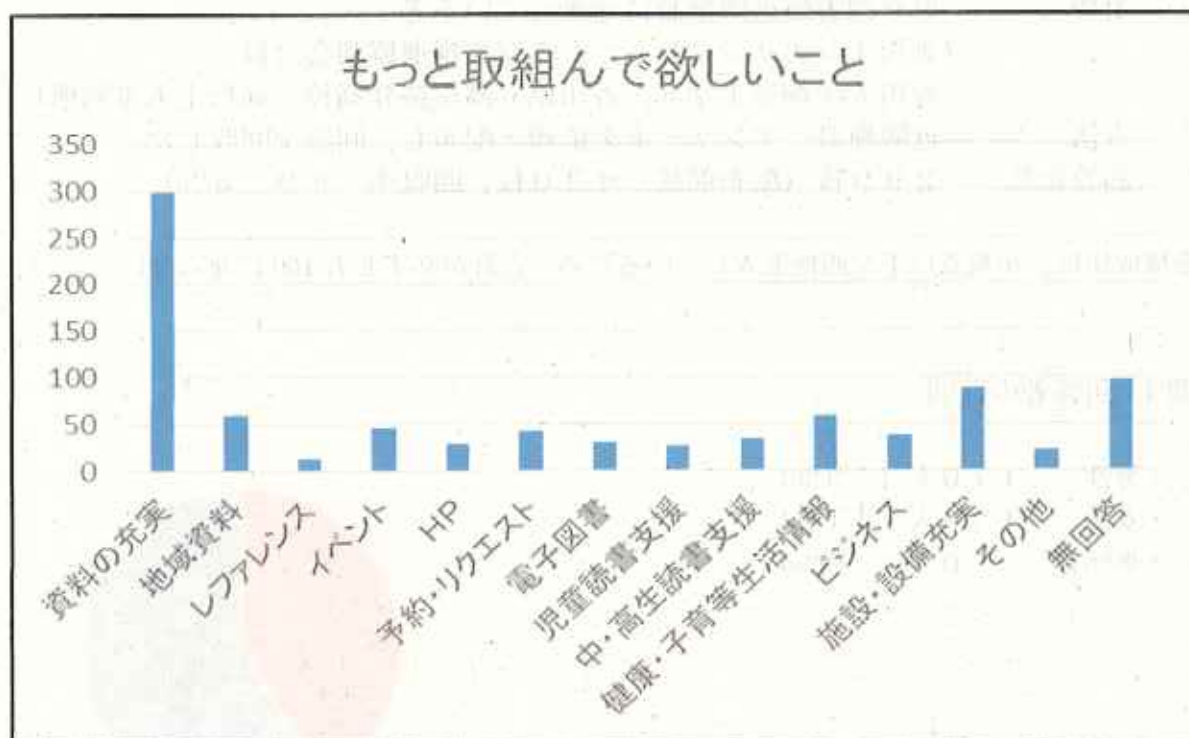 もっと取組んで欲しいこと
350
300
250
200
150
100
50
0
資料の充実
地域資料
レファレンス
イベント
HP
予約・リクエスト
電子図書
児童読書支援
中・高生読書支援
健康・子育等生活情報
ビジネス
施設・設備充実
その他
無回答